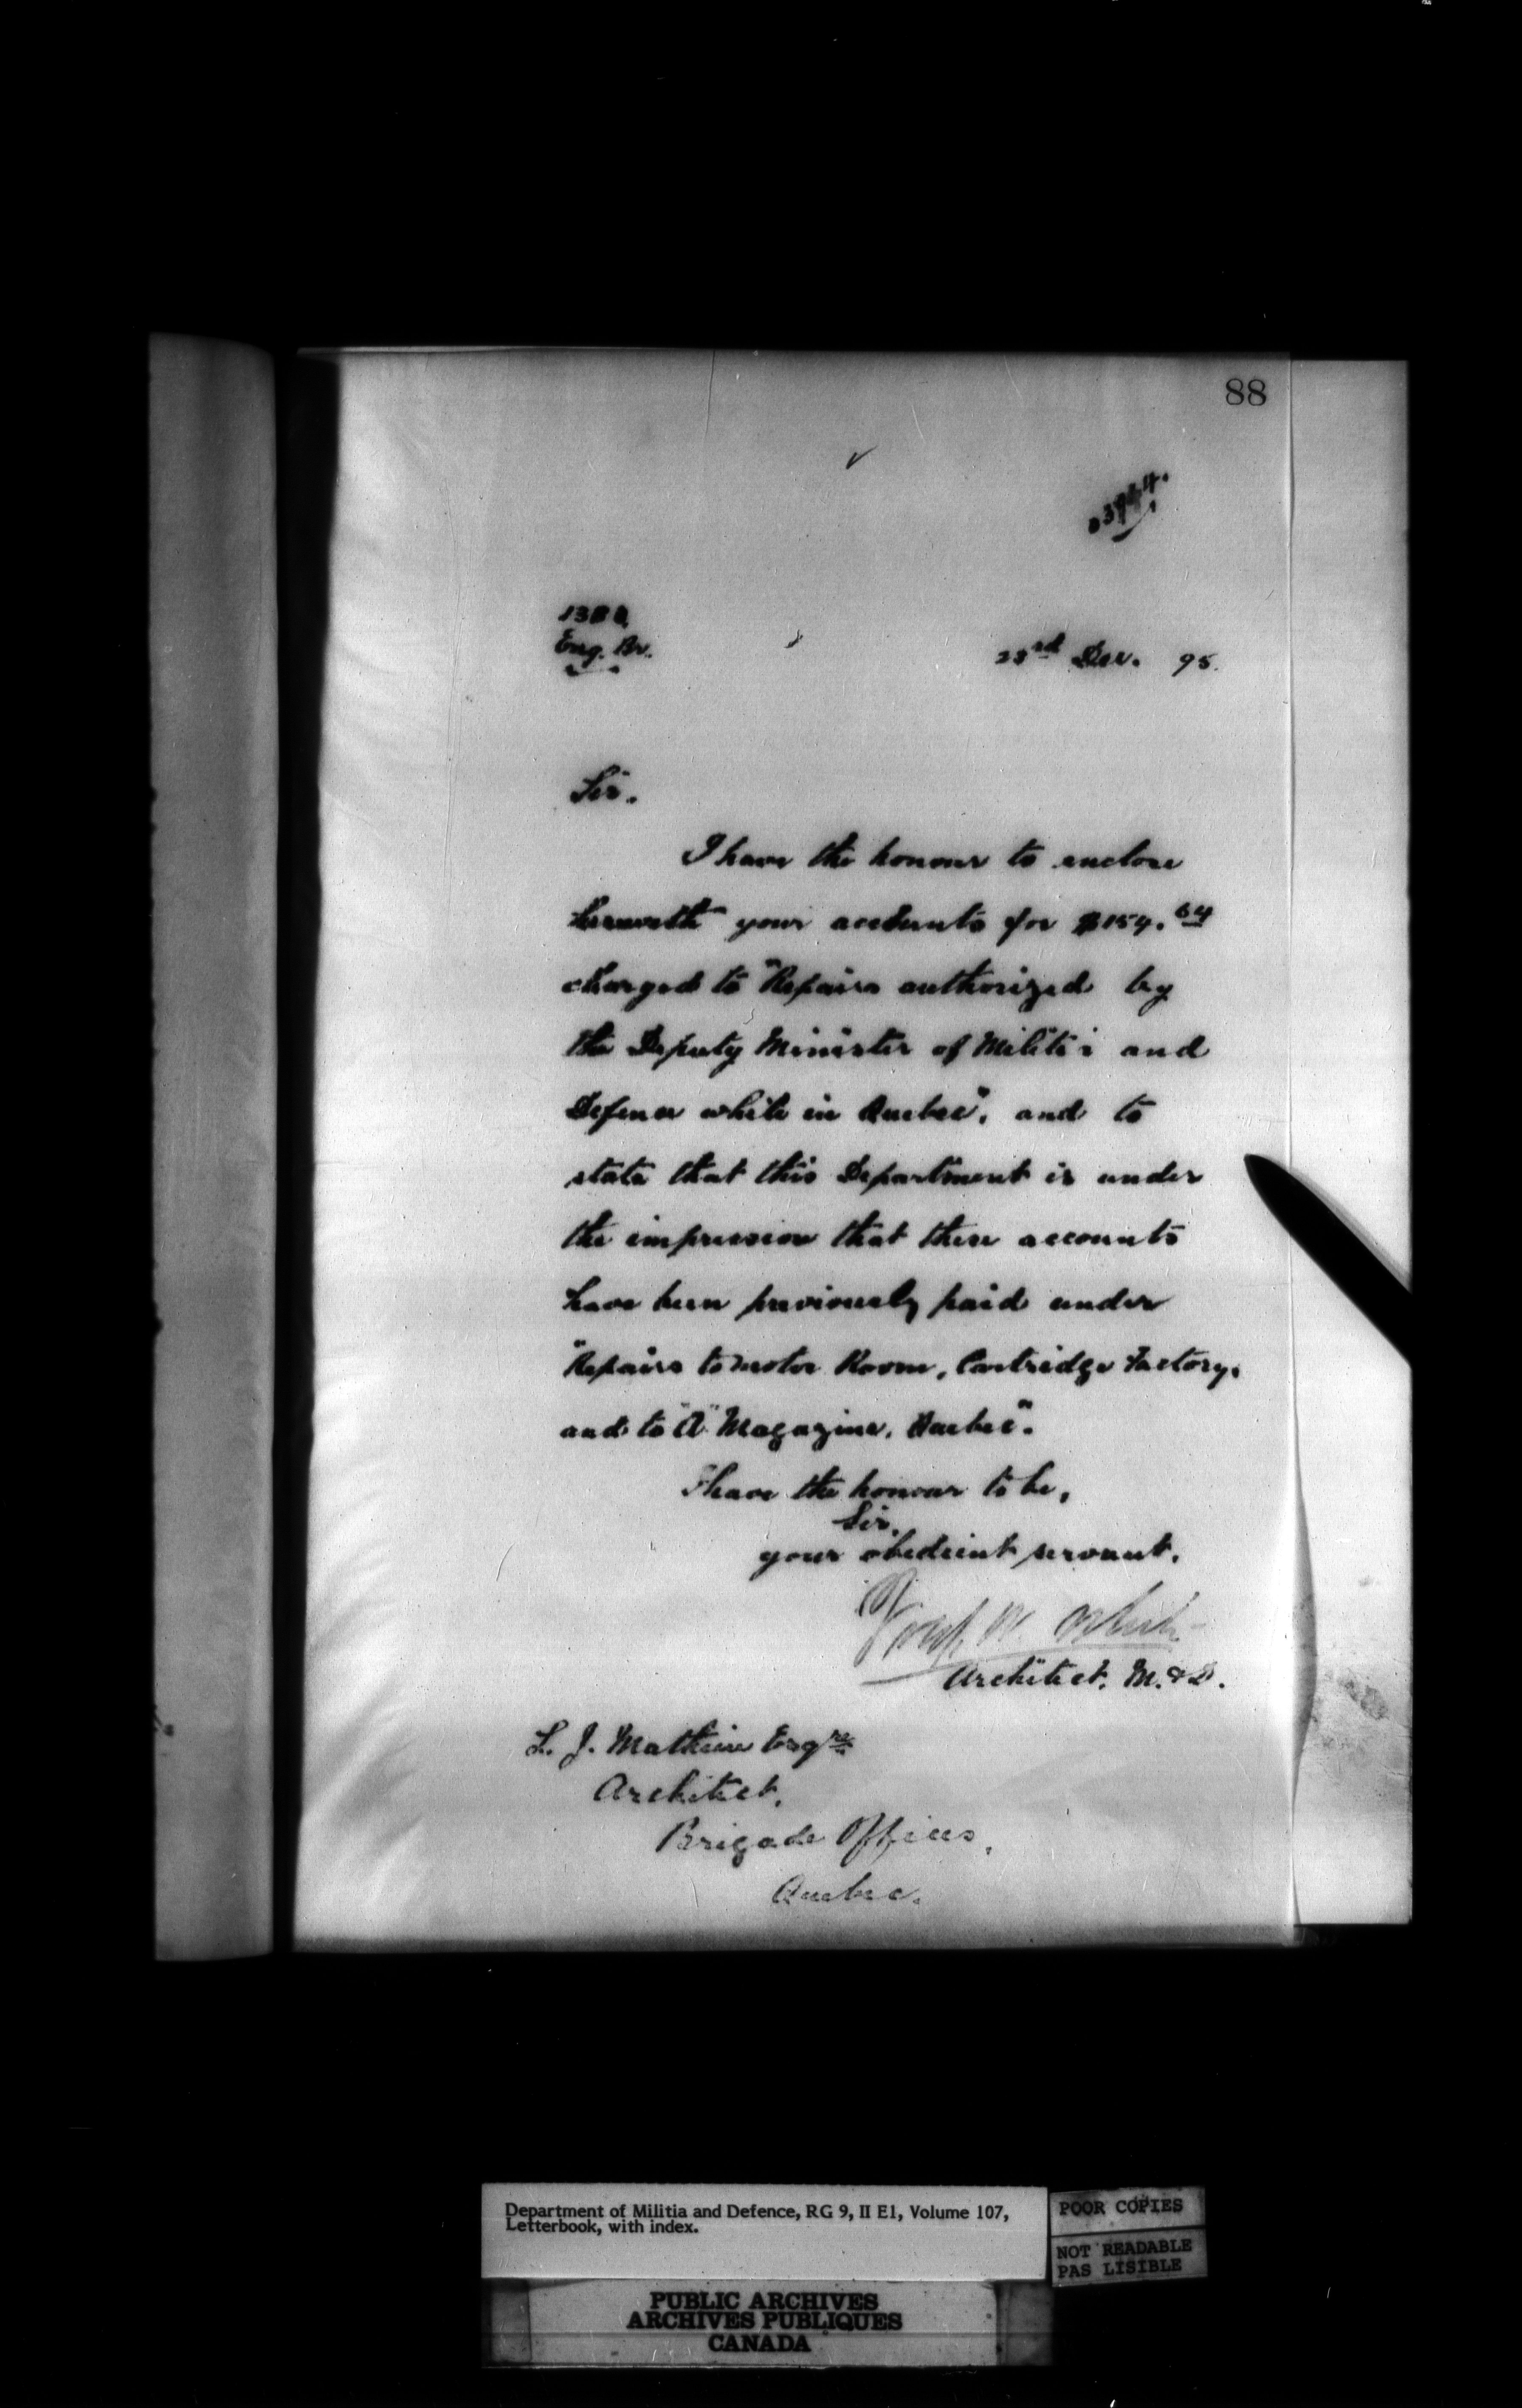 88
Eng. Br.
23rd Dec. 95.
Sir.
I have the honour to enclose
herewith your accounts for $154.64
charged to "Repairs authorized by
the Deputy Minister of Militia and
Defence while in Quebec", and to
state that this Department is under
the impression that these accounts
have been previously paid under
"Repairs to Motor Room, Cartridge Factory,
and to "A" Magazine, Quebec".
I have the honour to be,
Sir,
your obedient servant.
Architect. M. & D.
L. J. Mathieu Esqre
Architect,
Brigade Offices,
Quebec.
Department of Militia and Defence, RG 9, II E1, Volume 107,
Letterbook, with index.
POOR COPIES
NOT READABLE
PAS LISIBLE
PUBLIC ARCHIVES
ARCHIVES PUBLIQUES
CANADA